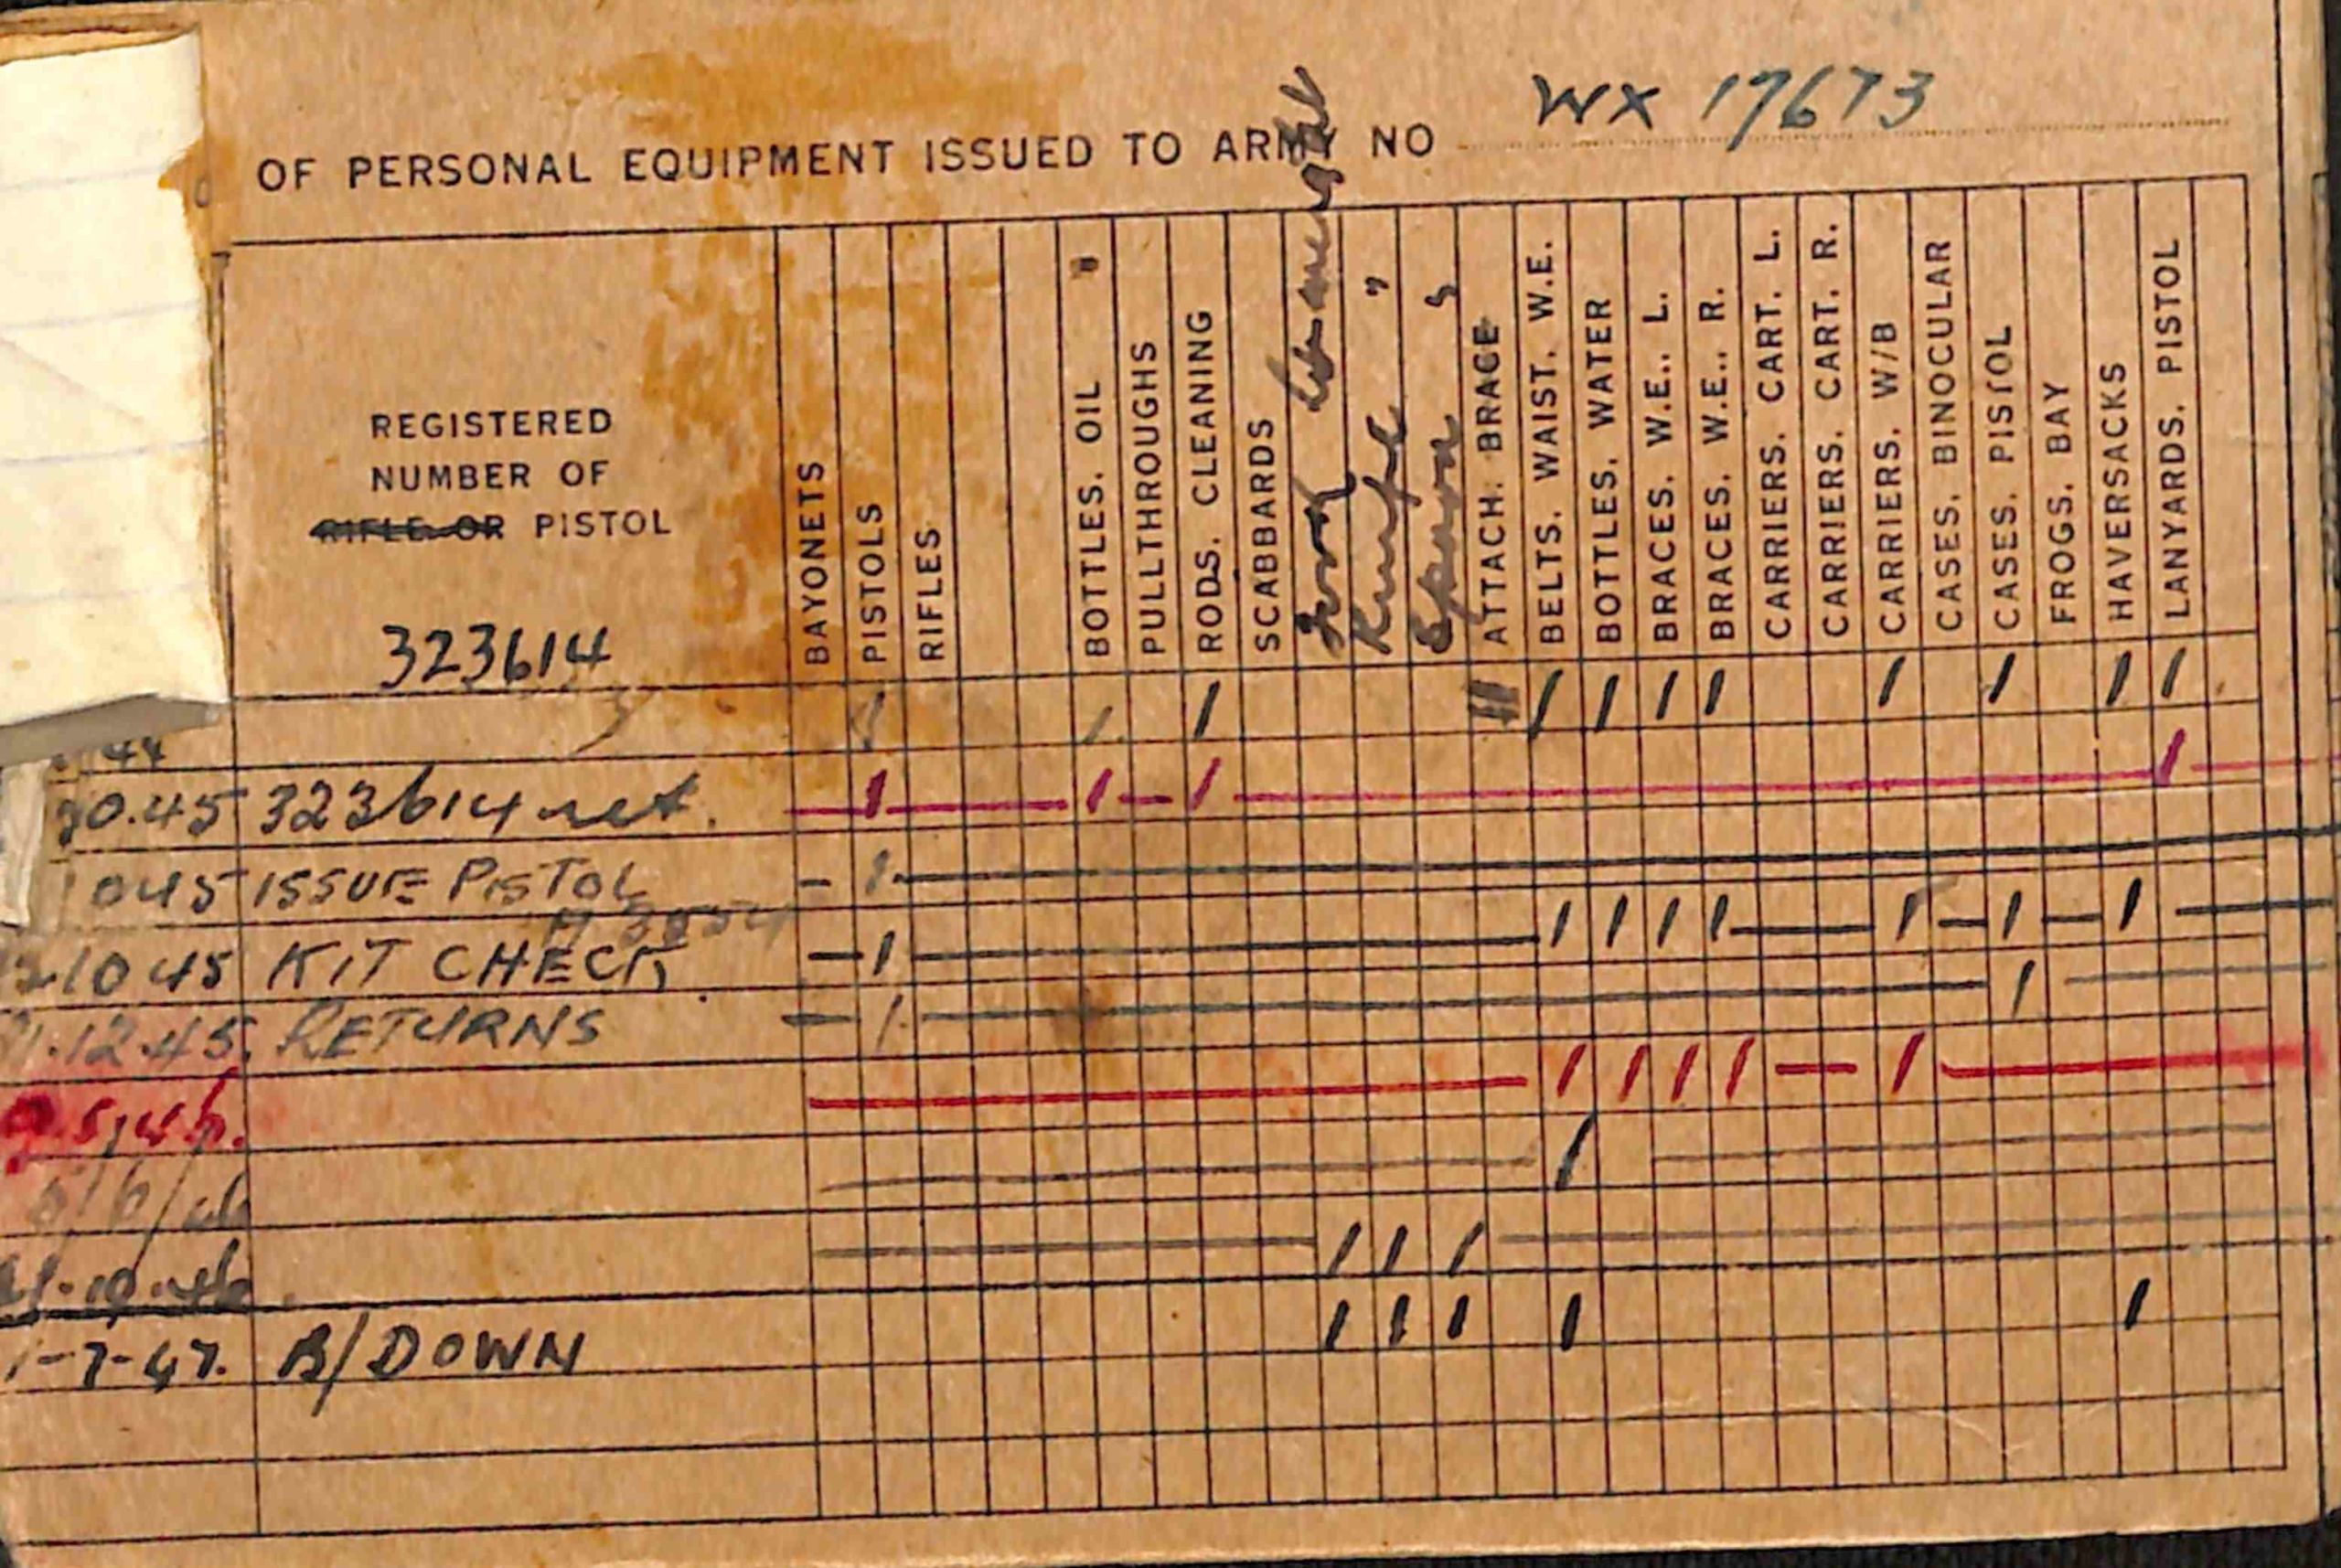 OF PERSONAL EQUIPMENT ISSUED TO ARMY NO WX 17673
REGISTERED
NUMBER OF
RIFLE OR PISTOL
323614
BAYONETS
PISTOLS
RIFLES
BOTTLES. OIL
PULLTHROUGHS
RODS. CLEANING
SCABBARDS
Knife "
Spoon "
ATTACH: BRACE
BELTS. WAIST. W.E.
BOTTLES. WATER
BRACES. W.E.. L.
BRACES. W.E.. R.
CARRIERS. CART. L.
CARRIERS. CART. R.
CARRIERS. W/B
CASES. BINOCULAR
CASES. PISTOL
FROGS. BAY
HAVERSACKS
LANYARDS. PISTOL
44 1 1 1 11 1 1 1 1 1 1 1 1
0.45 323614 ret. 1 1 1 1
045 ISSUE PISTOL 1
10 45 KIT CHECK 1 1 1 1 1 1 1 1
.12.45. RETURNS 1 1
1 1 1 1 1
1
1 1 1
1-7-47. B/DOWN 1 1 1 1 1